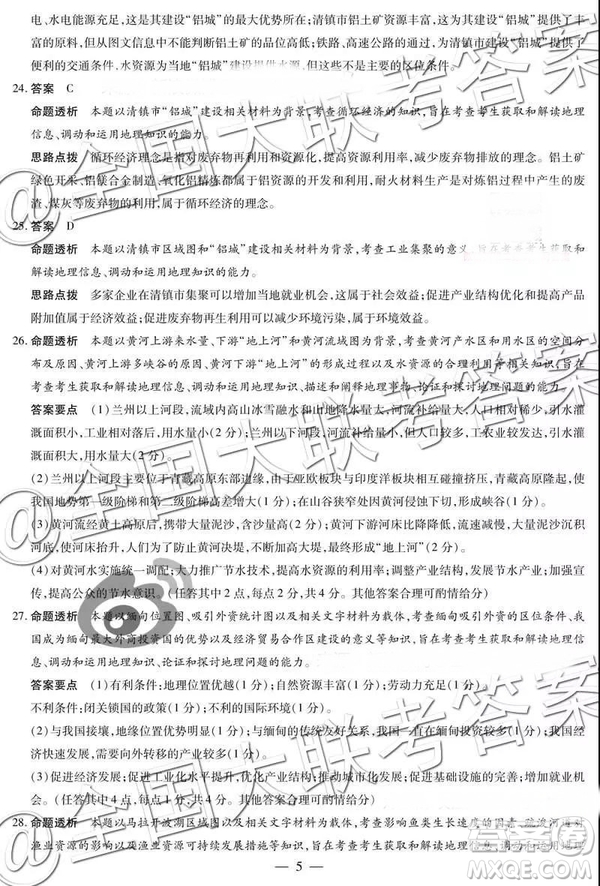 电、水电能源充足,这是其建设“铝城”的最大优势所在;清镇市铝土矿资源丰富,
但从图文信息中不能判断铝土矿的品位高低;铁路、高速公路的通过,为清镇市建设“铝城”提供了
便利的交通条件,水资源为当地“铝城”建设提供水源,但二者都不是主要的区位条件。
24. 答案 C
命题透析 本题以清镇市“铝城”建设相关材料为背景,考查循环经济的知识,旨在考查考生获取和解读地理
信息、调动和运用地理知识的能力。
思路点拨 循环经济理念是指对废弃物再利用和再资源化,提高资源利用率,减少废弃物排放的理念。铝土矿
绿色开采、铝镁合金制造、氧化铝精炼都属于铝资源的开发和利用,耐火材料生产是对炼铝过程中产生的废
渣、煤灰等废弃物的利用,属于循环经济的理念。
25. 答案 D
命题透析 本题以清镇市区域图和“铝城”建设相关材料为背景,考查工业集聚的意义,旨在考查考生获取和
解读地理信息、调动和运用地理知识的能力。
思路点拨 多家企业在清镇市集聚可以增加当地就业机会,这属于社会效益;促进产业结构优化和提高产品
附加值属于经济效益;促进废弃物再利用可以减少环境污染,属于环境效益。
26. 命题透析 本题以黄河上游来水量、下游“地上河”和黄河流域图为背景,考查黄河产水区和用水区的空间分
布及原因、黄河上游多峡谷的原因、黄河下游“地上河”的形成过程以及水资源的合理利用等相关知识,旨在
考查考生获取和解读地理信息、调动和运用地理知识、描述和阐释地理事物、论证和探讨地理问题的能力。
答案要点 (1)兰州以上河段,流域内高山冰雪融水和山地降水量大,河流补给量大,人口相对稀少,引水灌
溉面积小,工业相对落后,用水量小(2分);兰州以下河段,河流补给量小,人口较多,工农业较发达,引水灌
溉面积大,用水量大(2分)。
(2)兰州以上河段主要位于青藏高原东部边缘,由于亚欧板块与印度洋板块相互碰撞挤压,青藏高原隆起,使
我国地势第一级阶梯和第二级阶梯高差增大(2分);在山谷狭窄处因黄河侵蚀下切,形成峡谷(2分)。
(3)黄河流经黄土高原后,携带大量泥沙,含沙量高(2分);黄河下游河床比降降低,流速减慢,大量泥沙沉积
河底,使河床抬升,人们为了防止黄河决堤,不断加高大堤,形成“地上河”(2分)。
(4)对黄河水实施统一调配;大力推广节水技术,提高水资源的利用率;调整产业结构,发展节水产业;加强宣
传,提高公众的节水意识。(任答其中2点,每点2分,共4分。其他答案合理可酌情给分)
27. 命题透析 本题以缅甸位置图、吸引外资统计图以及相关文字材料为载体,考查缅甸吸引外资的区位条件、我
国成为缅甸最大外商投资国的优势以及经济贸易合作区建设的意义等知识,旨在考查考生获取和解读地理信息、
调动和运用地理知识、论证和探讨地理问题的能力。
答案要点 (1)有利条件:地理位置优越(1分);自然资源丰富(1分);劳动力充足(1分)。
不利条件:闭关锁国的政策(1分);
(2)与我国接壤,地缘位置优势明显(1分);与缅甸的传统友好关系,我国一直在缅甸投资(2分);我国经
济快速发展,需要向外转移的产业较多(1分)。
(3)促进经济发展;促进工业化水平提升,优化产业结构;推动城市化发展;促进基础设施的完善;增加就业机
会。(任答其中4点,每点1分,共4分。其他答案合理可酌情给分)
28. 命题透析 本题以马拉开波湖区域图以及相关文字材料为载体,考查影响鱼类生长速度的因素、疏浚河道对
渔业资源的影响以及渔业资源可持续发展措施等相关知识,旨在考查考生获取和解读地理
— 5 —
@全国大联考答案